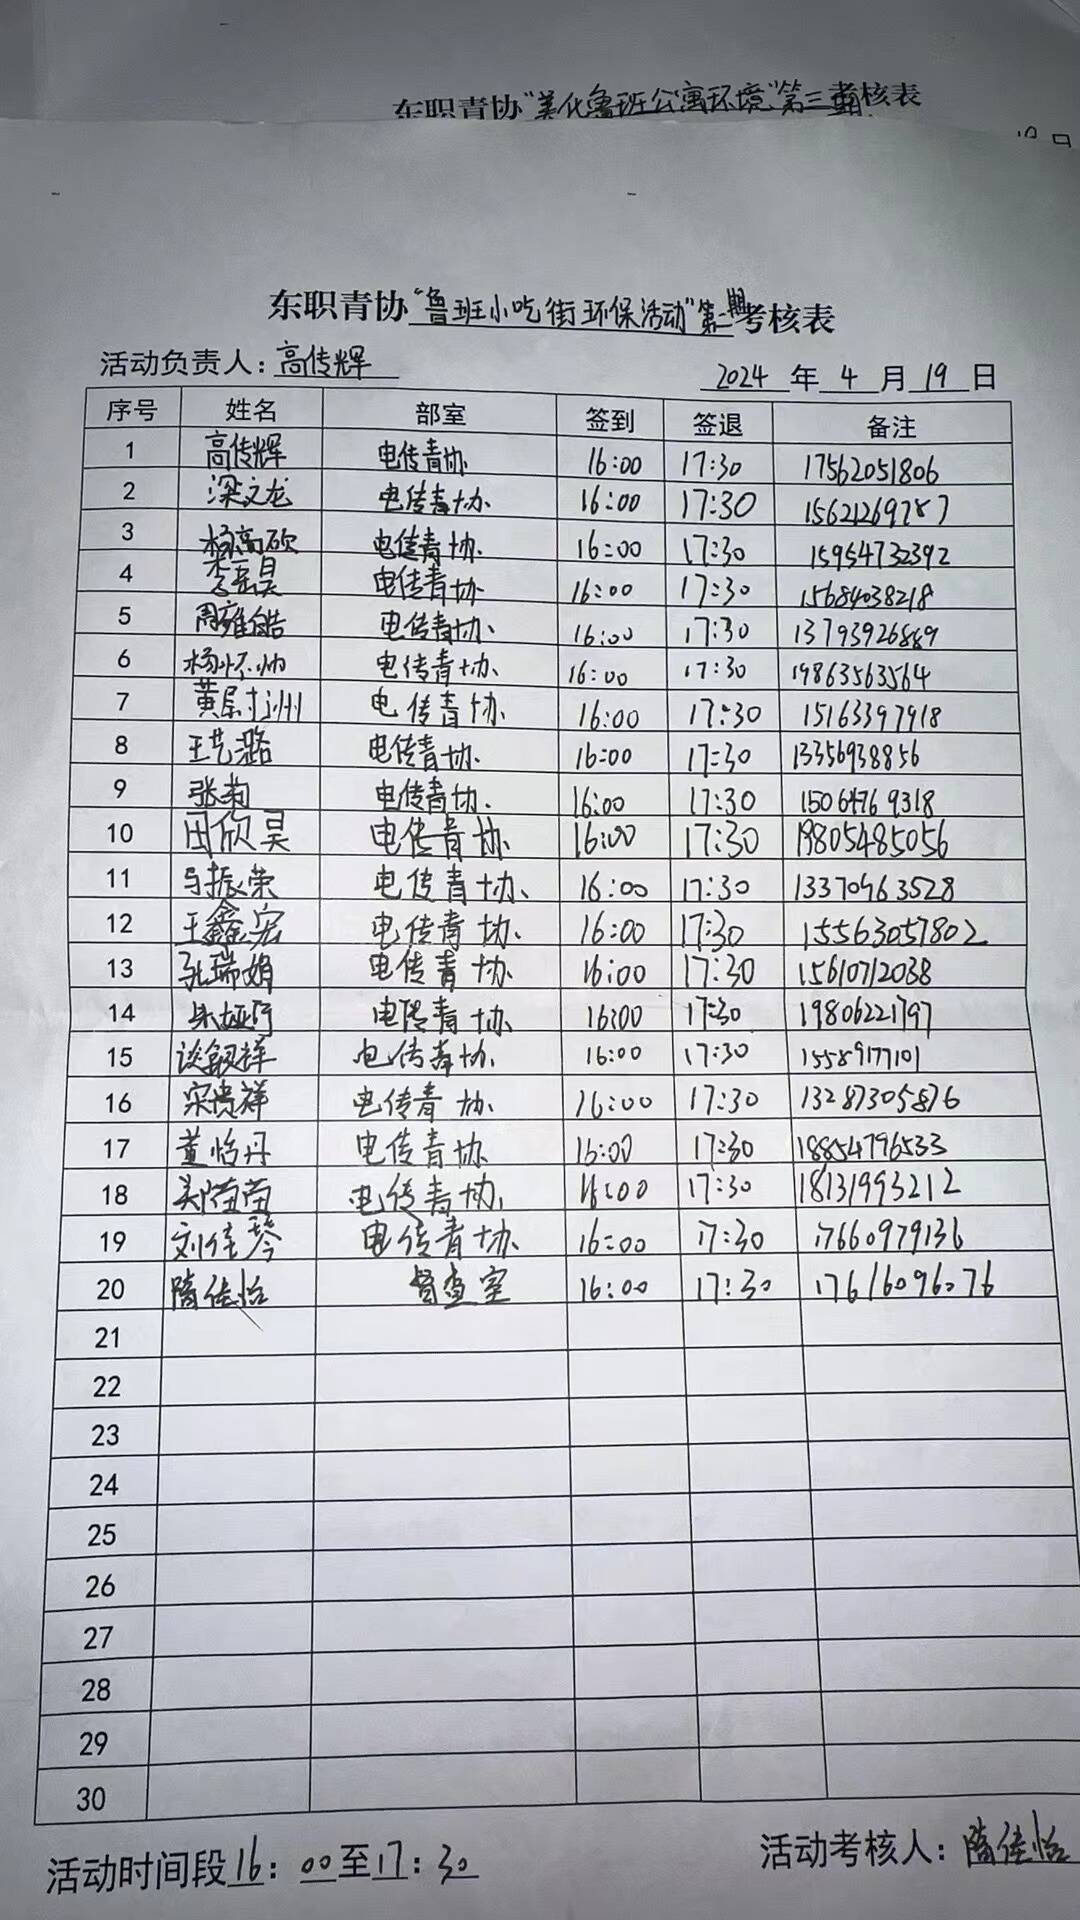 东职青协“美化鲁班公寓环境”第三期考核表
日
东职青协“鲁班小吃街环保活动”第二期考核表
活动负责人：高传辉 2024 年 4 月 19 日
序号 姓名 部室 签到 签退 备注
1 高传辉 电传青协 16:00 17:30 17562051806
2 梁文龙 电传青协 16:00 17:30 15621269787
3 杨高硕 电传青协 16:00 17:30 15954732392
4 李岳昊 电传青协 16:00 17:30 15684038218
5 周雍皓 电传青协 16:00 17:30 13793926889
6 杨怀帅 电传青协 16:00 17:30 19863563564
7 黄尉洲 电传青协 16:00 17:30 15163397918
8 王艺潞 电传青协 16:00 17:30 13356938856
9 张莉 电传青协 16:00 17:30 15064769318
10 闵欣昊 电传青协 16:00 17:30 19805485056
11 马振荣 电传青协 16:00 17:30 13370963528
12 王鑫宏 电传青协 16:00 17:30 15563057802
13 张瑞娟 电传青协 16:00 17:30 15610712038
14 电传青协 16:00 17:30 19806221797
15 谈毅祥 电传青协 16:00 17:30 15589177101
16 宋贵祥 电传青协 16:00 17:30 13287305876
17 董怡丹 电传青协 16:00 17:30 18854796533
18 电传青协 16:00 17:30 18131993212
19 刘佳琴 电传青协 16:00 17:30 17660979136
20 隋佳怡 督查室 16:00 17:30 17616096076
21
22
23
24
25
26
27
28
29
30
活动时间段16：00至17：30 活动考核人：隋佳怡